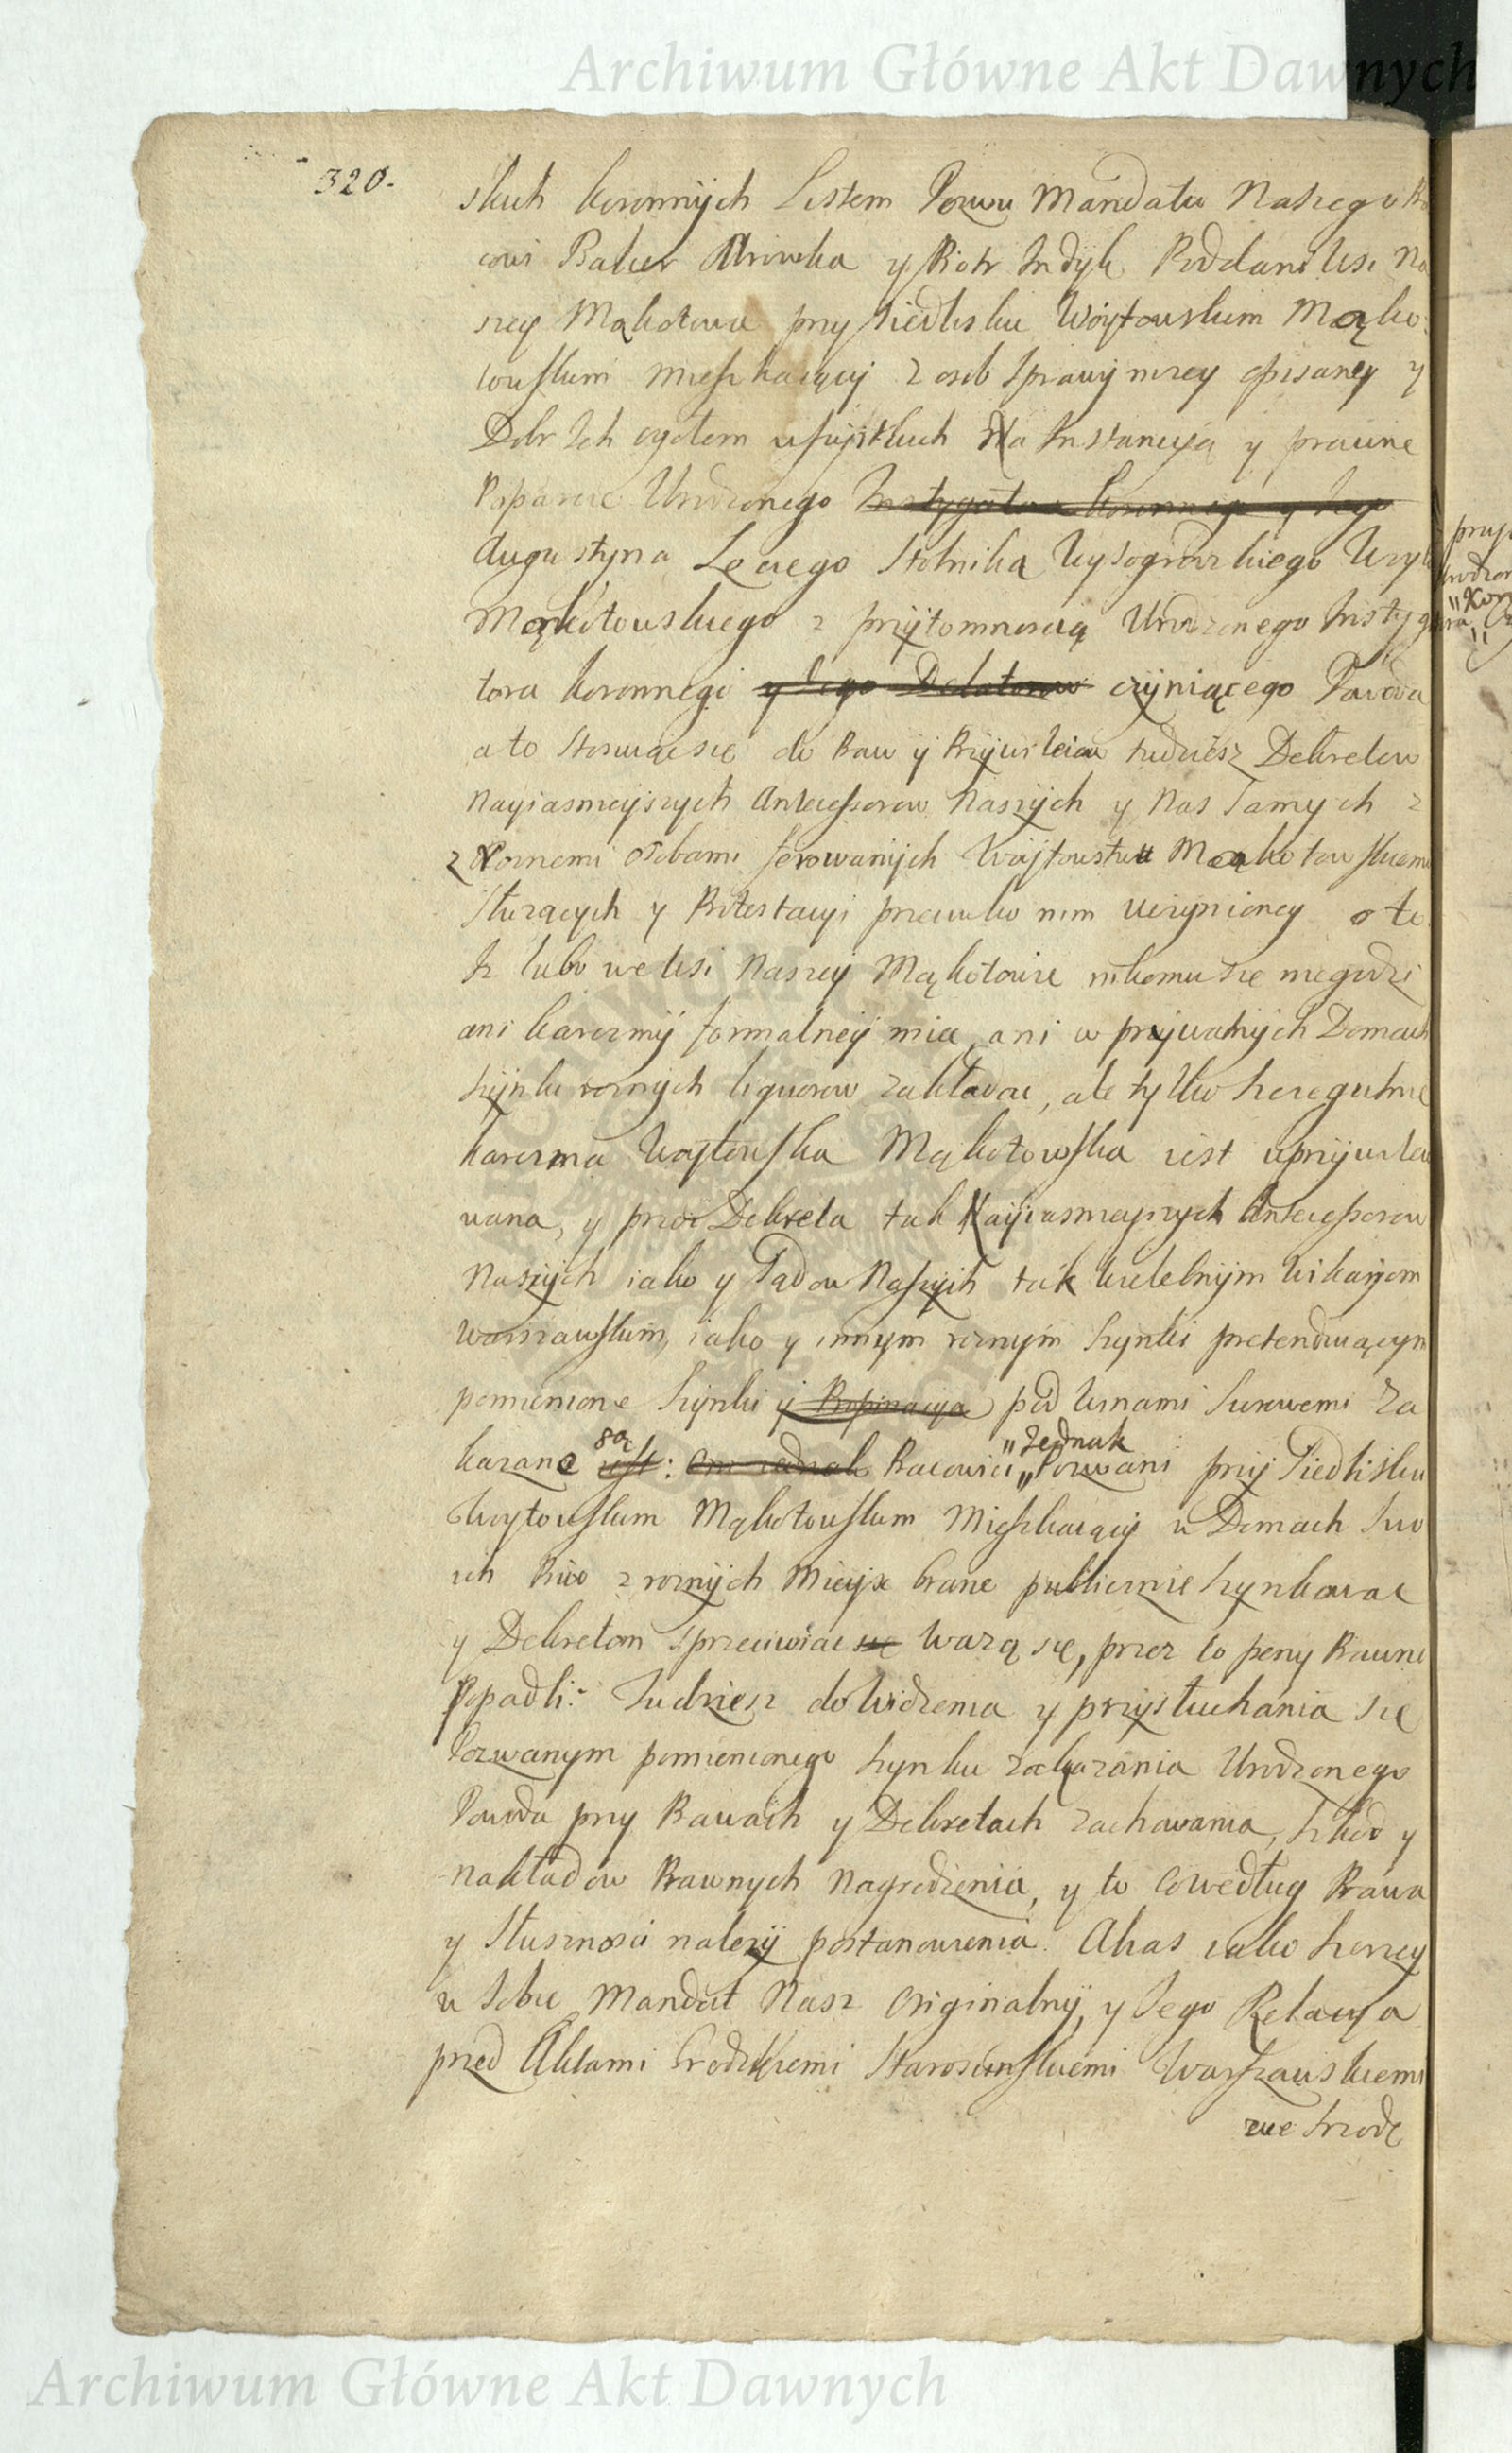 Archiwum Główne Akt Dawnych
320.
skich koronnych Listem Pozwu Mandatu Naszego
Piotr Indyk Poddani Wsi Na
szey Mąkotowa przy Siedlisku Woytowskim Mąko
towskim mieszkaiący z osob sprawy niżey opisaney y
Dobr Ich ogołem wszystkich Na Instancyą y prawne
Poparcie Urodzonego Instygatora Koronnego y Jego
Augustyna Stolnika Wysogrodzkiego Woyta
Mąkotowskiego z przytomnoscią Urodzonego Instyga
tora koronnego y Jego Delatorow czyniącego Powoda
a to stosuiąc się do Praw y Przywileiow tudziesz Dekretow
Nayiasnieyszych Antecessorow Naszych y Nas Samych z
z Roznemi osobami ferowanych Woytowstwu Mąkotowskiemu
służących y Protestacyi przeciwko nim uczynioney o to
Iż lubo we Wsi Naszey Mąkotowie nikomu się niegodzi
ani karczmy formalney mieć, ani w prywatnych Domach
szynku roznych liquorow zakładać, ale tylko szczegulnie
karczma Woytowska Mąkotowska iest uprzywileio
wana, y przez Dekreta tak Nayiasnieyszych Antecessorow
Naszych iako y Sądow Naszych tak Wielebnym Wikaryom
Warszawskim, iako y innym roznym szynki pretenduiącym
pomienione szynki y Propinacya pod Winami surowemi za
kazane są iest: oni iednak Pracowici "Jednak" Pozwani przy Siedlisku
Woytowskim Mąkotowskim Mieszkaiący w Domach swo
ich Piwo z roznych Mieysc brane publicznie szynkować
y Dekretom sprzeciwiać się ważą się, przez co peny Prawne
Popadli: Tudziesz do Widzenia y przysłuchania się
Pozwanym pomienionego szynku zakazania Urodzonego
Powoda przy Prawach y Dekretach zachowania, szkod y
nakładow Prawnych Nagrodzenia, y to co według Prawa
y Słusznosci należy postanowienia. Alias iako szerzey
w Sobie Mandat Nasz Originalny, y Jego Relacya
przed Aktami Grodzkiemi Starościnskiemi Warszawskiemi
we Srzodę
Archiwum Główne Akt Dawnych